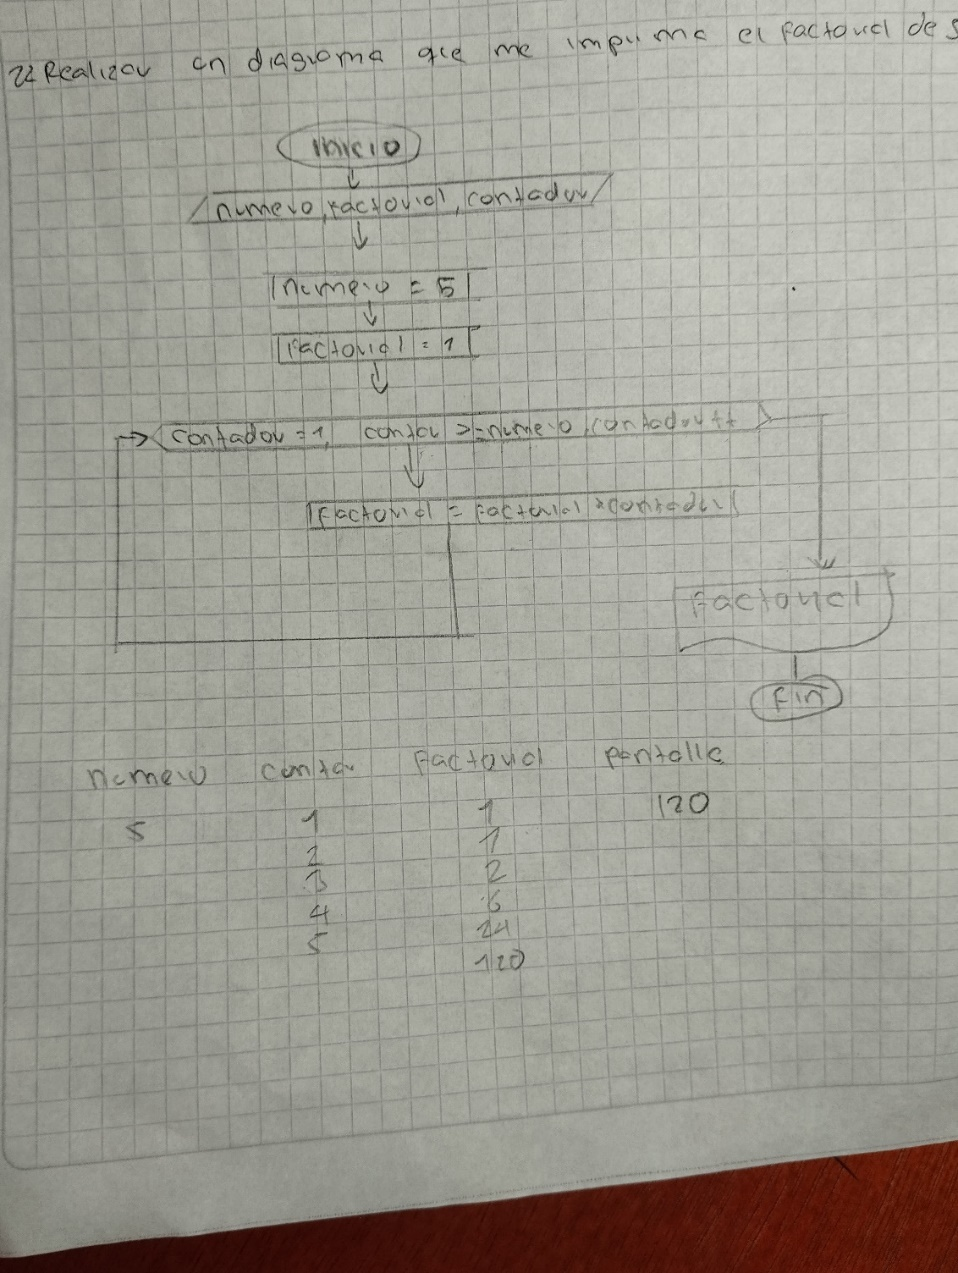 22 Realizar un diagrama que me imprima el factorial de 5
inicio
numero, factorial, contador
numero = 5
Factorial = 1
contador = 1, contar >= numero, contador ++
Factorial = Factorial * contador
Factorial
Fin
numero contar Factorial pantalla
5 1 1 120
2 1
3 2
4 6
5 24
120